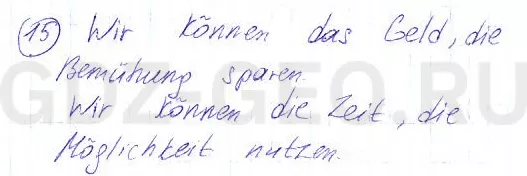 15 Wir können das Geld, die
Bemühung sparen.
Wir können die Zeit, die
Möglichkeit nutzen.
GDZ-GEO.RU